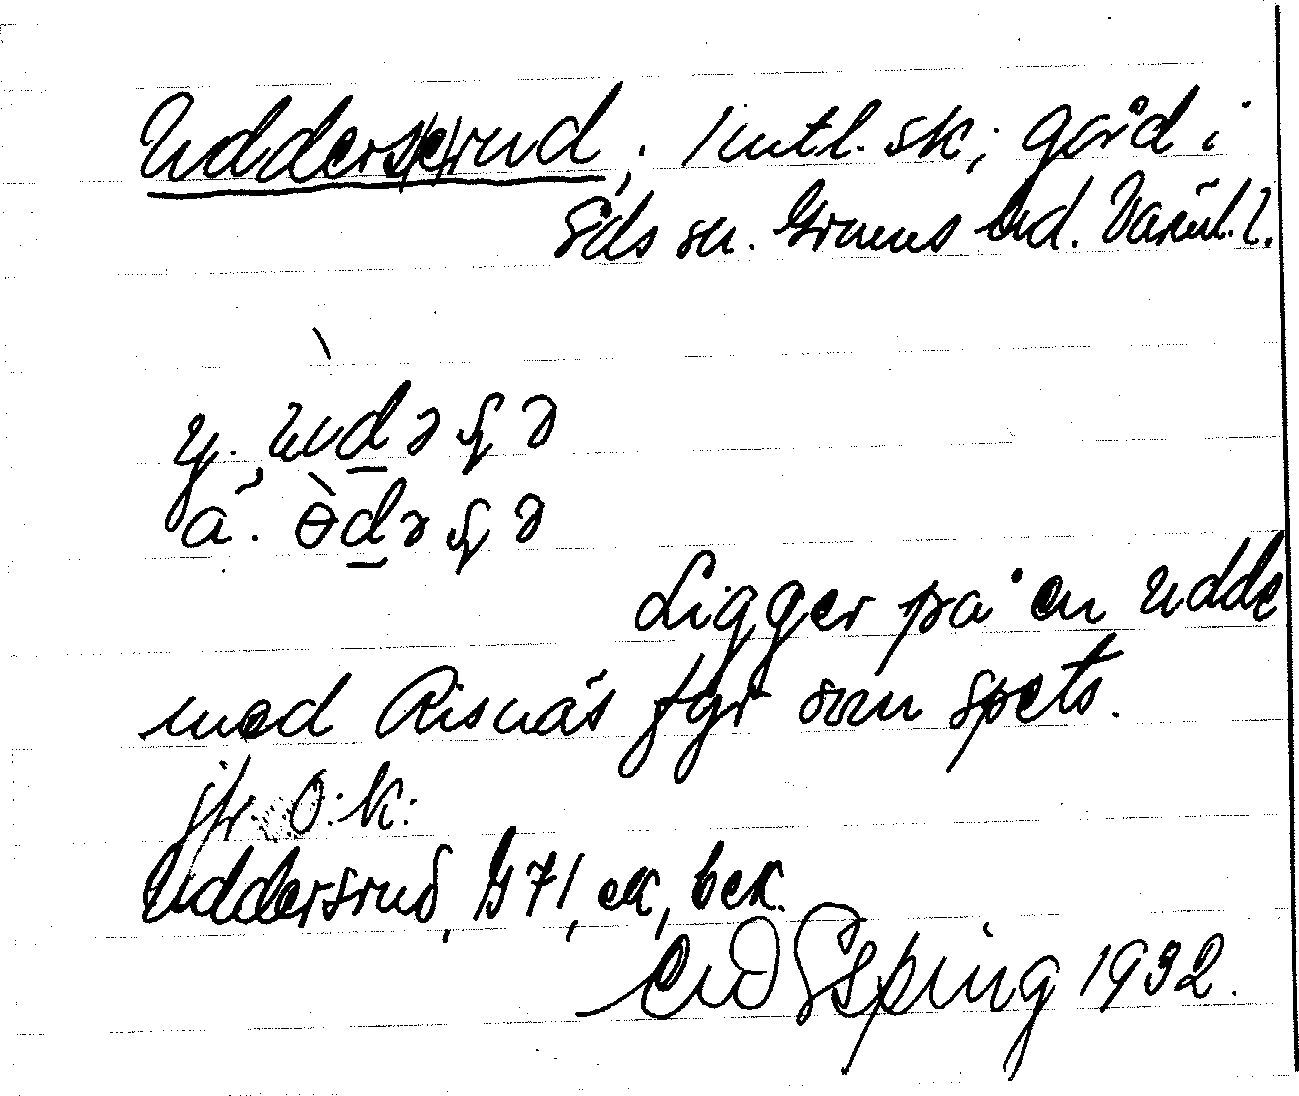 Uddersrud, 1 mtl. sk; gård i
Eds sn. Grums hd. Värml. l.
y. ùdəʂə
ä. ɵ̀dəʂə
Ligger på en udde
med Risnäs fyr som spets.
jfr O:k:
Uddersrud, G 71, ek, bek.
Esping 1932.